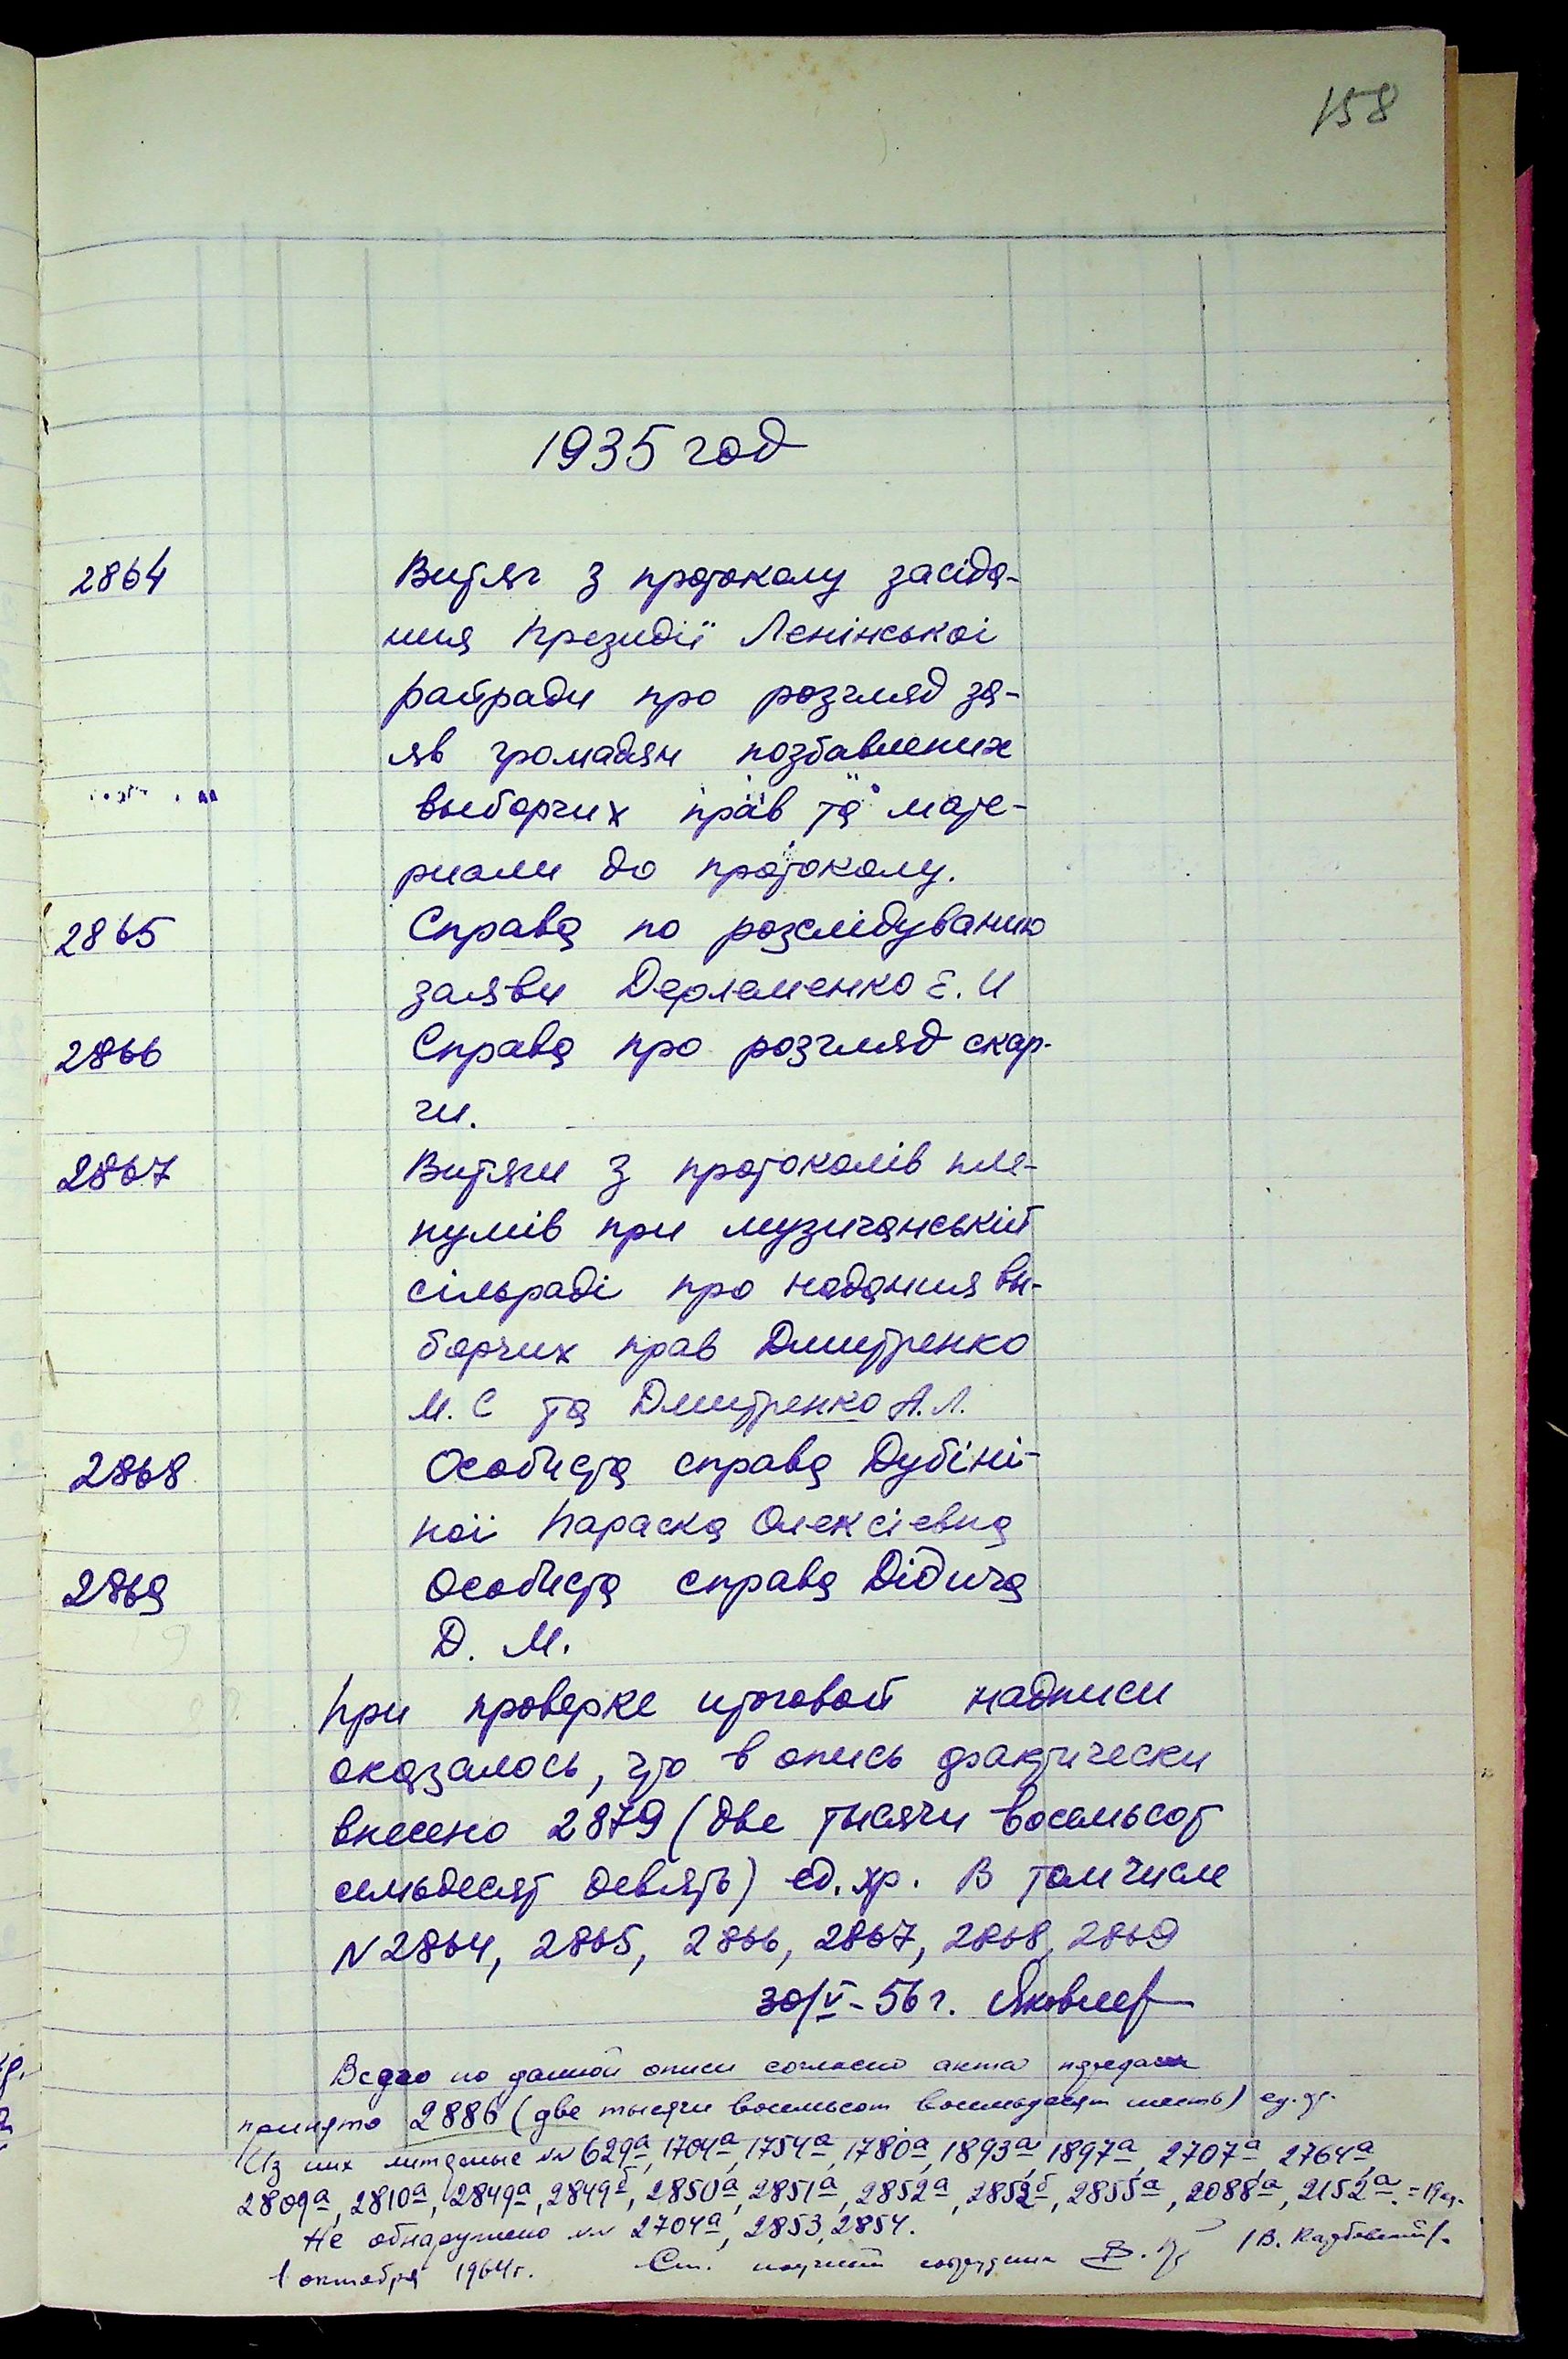 158
1935 год
2864 Витяг з протоколу засіда-
ння Президії Ленінської
райради про розгляд за-
яв громадян позбавлених
выборчих прав та мате-
риали до протоколу.
2865 Справа по розслідуванню
заяви Дерламенко Е. И
2866 Справа про розгляд скар-
ги.
2867 Витяги з протоколів пле-
нумів при музичанській
сільраді про надання ви-
борчих прав Дмитренко
М. С та Дмитренко А. Л.
2868 Особиста справа Дубіні-
ної Параска Олексієвна
2869 Особиста справа Дідича
Д. М.
При проверке итоговой надписи
оказалось, что в опись фактически
внесено 2879 (две тысячи восемьсот
семьдесят девять) ед. хр. В том числе
N 2864, 2865, 2866, 2867, 2868, 2869
30/V-56 г. Яковлев
Всего по данной описи согласно акта передачи
принято 2886 (две тысячи восемьсот восемьдесят шесть) ед. хр.
Из них литерные №№ 629а, 1704а, 1754а, 1780а, 1893а, 1897а, 2707а, 2764а,
2809а, 2810а, 2849а, 2849б, 2850а, 2851а, 2852а, 2852б, 2855а, 2088а, 2152а. = 19 ед.
Не обнаружено №№ 2704а, 2853, 2854.
1 октября 1964 г. Ст. научный сотрудник /В.